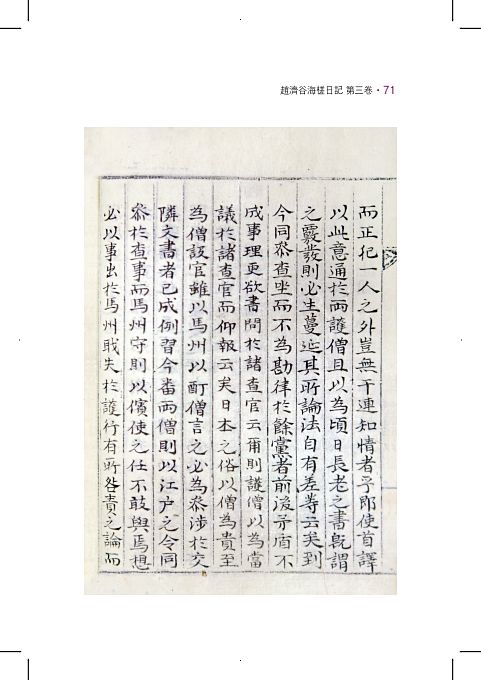 趙濟谷海槎日記 第三卷 · 71
而正犯一人之外豈無干連知情者乎即使首譯
以此意通於兩護僧且以為頃日長老之書旣謂
之覈發則必生蔓延其所論法自有差等云矣到
今同叅查坐而不為勘律於餘黨者前後矛盾不
成事理更欲書問於諸查官云爾則護僧以為當
議於諸查官而仰報云矣日本之俗以僧為貴至
為僧設官雖以馬州以酊僧言之必為叅涉於交
隣文書者已成例習今番兩僧則以江户之令同
叅於查事而馬州守則以儐使之任不敢與焉想
必以事出於馬州戢失於護行有所咎責之論而